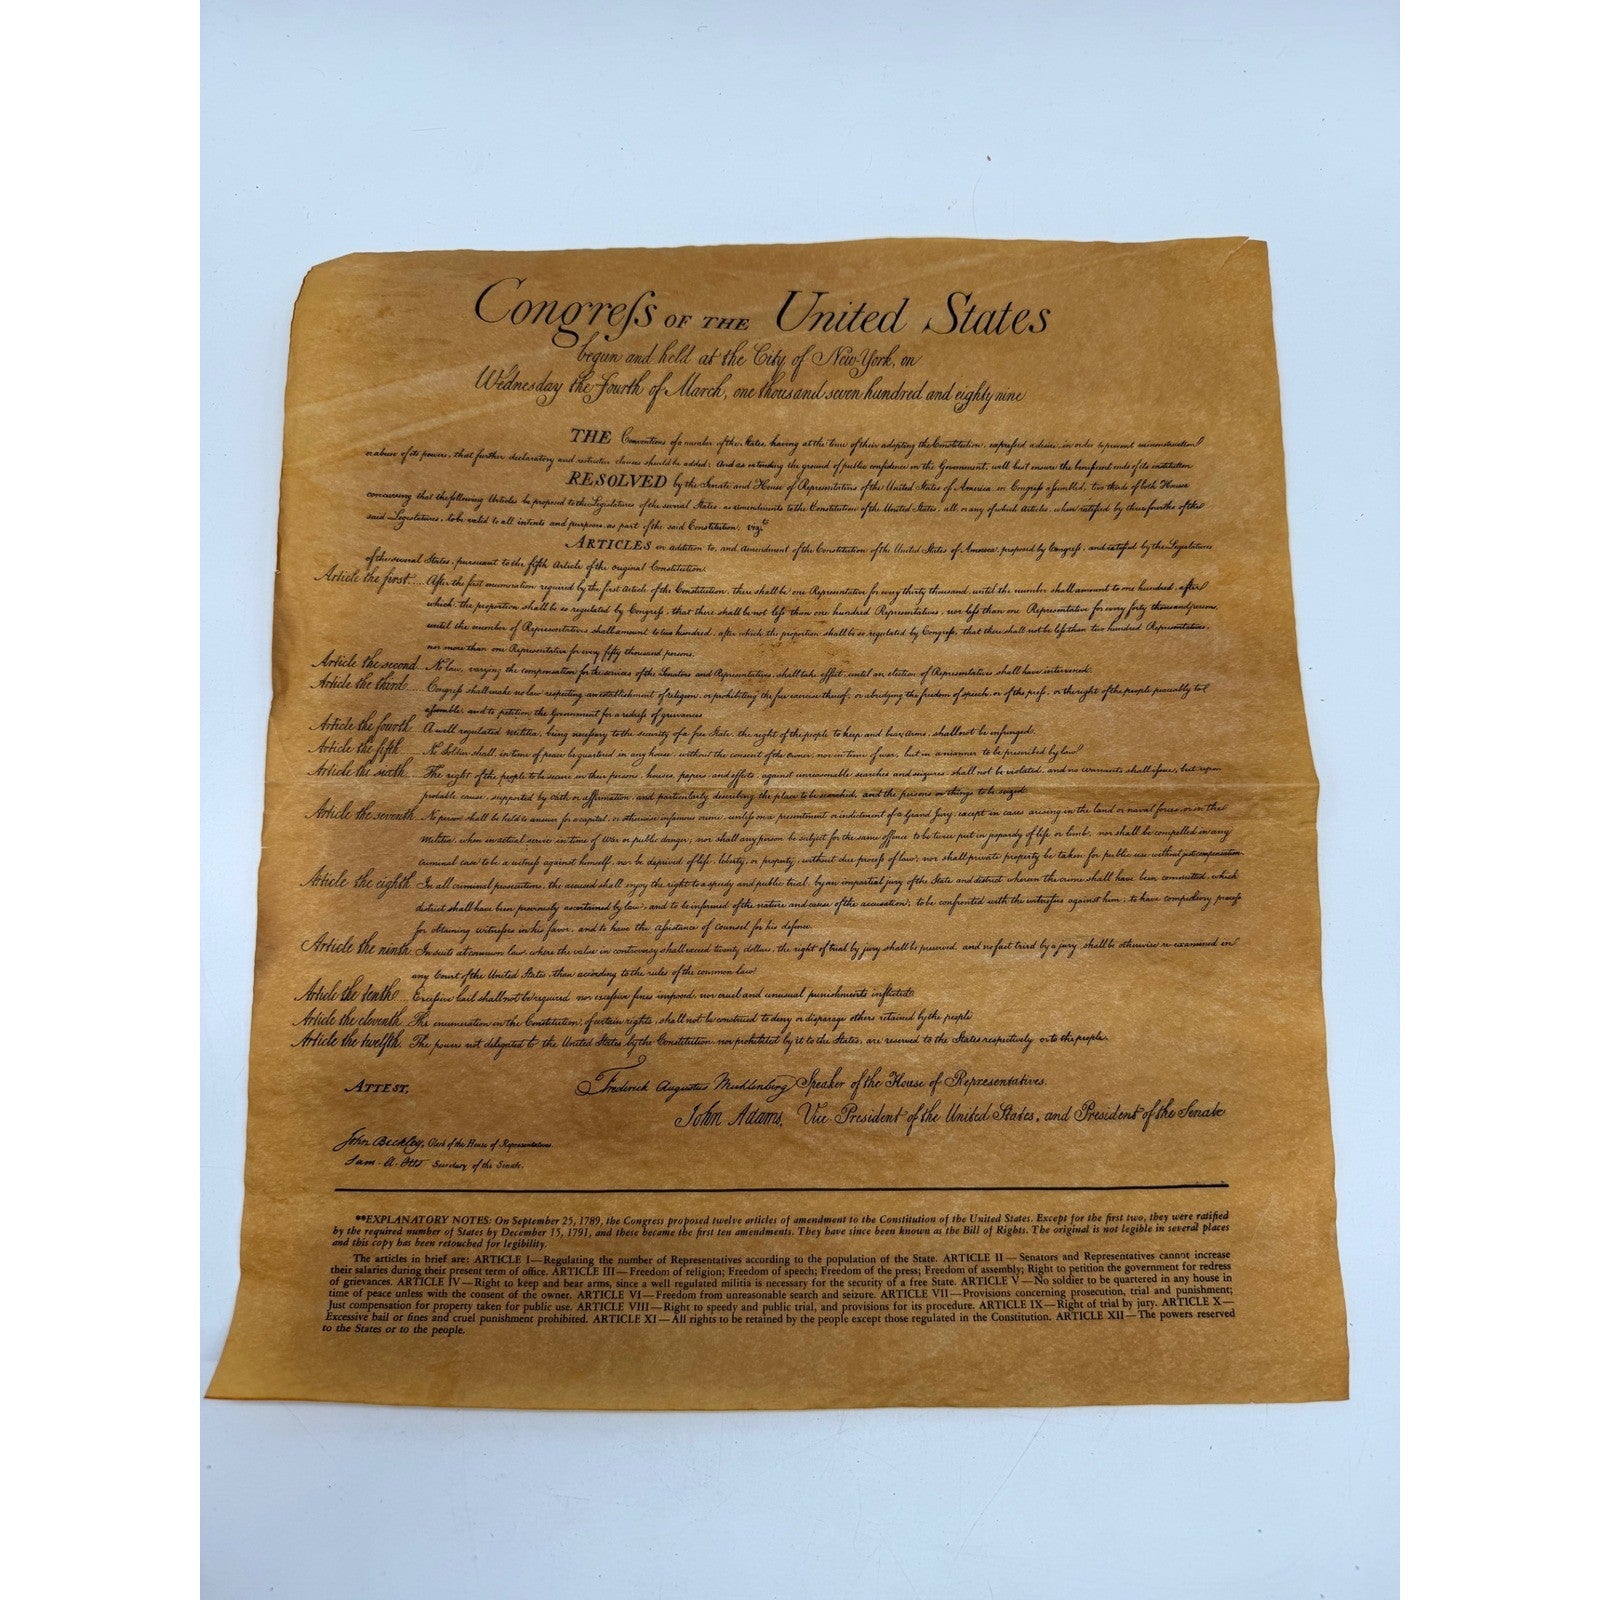 Congreſs OF THE United States
begun and held at the City of New-York, on
Wednesday the Fourth of March, one thousand seven hundred and eighty nine
THE Conventions of a number of the States, having at the time of their adopting the Constitution, expreſsed a desire, in order to prevent misconstruction
or abuse of its powers, that further declaratory and restrictive clauses should be added: And as extending the ground of public confidence in the Government, will best ensure the beneficent ends of its institution
RESOLVED by the Senate and House of Representatives of the United States of America in Congreſs aſsembled, two thirds of both Houses
concurring that the following Articles be proposed to the Legislatures of the several States, as amendments to the Constitution of the United States, all, or any of which Articles, when ratified by three fourths of the
said Legislatures, to be valid to all intents and purposes, as part of the said Constitution, vizt
ARTICLES in addition to, and amendment of the Constitution of the United States of America, proposed by Congreſs, and ratified by the Legislatures
of the several States, pursuant to the fifth Article of the original Constitution.
Article the first.... After the first enumeration required by the first Article of the Constitution, there shall be one Representative for every thirty thousand, until the number shall amount to one hundred, after
which, the proportion shall be so regulated by Congreſs, that there shall be not leſs than one hundred Representatives, nor leſs than one Representative for every forty thousand persons,
until the number of Representatives shall amount to two hundred, after which the proportion shall be so regulated by Congreſs, that there shall not be leſs than two hundred Representatives,
nor more than one Representative for every fifty thousand persons.
Article the second... No law, varying the compensation for the services of the Senators and Representatives, shall take effect, until an election of Representatives shall have intervened.
Article the third.... Congreſs shall make no law respecting an establishment of religion, or prohibiting the free exercise thereof; or abridging the freedom of speech, or of the preſs, or the right of the people peaceably to
aſsemble, and to petition the Government for a redreſs of grievances
Article the fourth.. A well regulated Militia, being neceſsary to the security of a free State, the right of the people to keep and bear Arms, shall not be infringed.
Article the fifth.... No Soldier shall, in time of peace be quartered in any house, without the consent of the owner, nor in time of war, but in a manner to be prescribed by law.
Article the sixth.... The right of the people to be secure in their persons, houses, papers, and effects, against unreasonable searches and seizures, shall not be violated, and no warrants shall iſsue, but upon
probable cause, supported by oath or affirmation, and particularly describing the place to be searched, and the persons or things to be seized.
Article the seventh.. No person shall be held to answer for a capital, or otherwise infamous crime, unleſs on a presentment or indictment of a Grand Jury, except in cases arising in the land or naval forces, or in the
Militia, when in actual service in time of War or public danger; nor shall any person be subject for the same offence to be twice put in jeopardy of life or limb, nor shall be compelled in any
criminal case to be a witneſs against himself, nor be deprived of life, liberty, or property, without due proceſs of law; nor shall private property be taken for public use without just compensation.
Article the eighth. In all criminal prosecutions, the accused shall enjoy the right to a speedy and public trial, by an impartial jury of the State and district wherein the crime shall have been committed, which
district shall have been previously ascertained by law, and to be informed of the nature and cause of the accusation; to be confronted with the witneſses against him; to have compulsory proceſs
for obtaining witneſses in his favor, and to have the aſsistance of counsel for his defence.
Article the ninth. In suits at common law, where the value in controversy shall exceed twenty dollars, the right of trial by jury shall be preserved, and no fact tried by a jury, shall be otherwise re-examined in
any Court of the United States, than according to the rules of the common law.
Article the tenth.... Exceſsive bail shall not be required nor exceſsive fines imposed, nor cruel and unusual punishments inflicted.
Article the eleventh. The enumeration in the Constitution, of certain rights, shall not be construed to deny or disparage others retained by the people
Article the twelfth. The powers not delegated to the United States by the Constitution, nor prohibited by it to the States, are reserved to the States respectively or to the people.
ATTEST,
Frederick Augustus Muhlenberg Speaker of the House of Representatives.
John Adams, Vice-President of the United States, and President of the Senate
John Beckley, Clerk of the House of Representatives.
Sam. A. Otis Secretary of the Senate.
**EXPLANATORY NOTES: On September 25, 1789, the Congress proposed twelve articles of amendment to the Constitution of the United States. Except for the first two, they were ratified
by the required number of States by December 15, 1791, and these became the first ten amendments. They have since been known as the Bill of Rights. The original is not legible in several places
and this copy has been retouched for legibility.
The articles in brief are: ARTICLE I—Regulating the number of Representatives according to the population of the State. ARTICLE II—Senators and Representatives cannot increase
their salaries during their present term of office. ARTICLE III—Freedom of religion; Freedom of speech; Freedom of the press; Freedom of assembly; Right to petition the government for redress
of grievances. ARTICLE IV—Right to keep and bear arms, since a well regulated militia is necessary for the security of a free State. ARTICLE V—No soldier to be quartered in any house in
time of peace unless with the consent of the owner. ARTICLE VI—Freedom from unreasonable search and seizure. ARTICLE VII—Provisions concerning prosecution, trial and punishment;
Just compensation for property taken for public use. ARTICLE VIII—Right to speedy and public trial, and provisions for its procedure. ARTICLE IX—Right of trial by jury. ARTICLE X—
Excessive bail or fines and cruel punishment prohibited. ARTICLE XI—All rights to be retained by the people except those regulated in the Constitution. ARTICLE XII—The powers reserved
to the States or to the people.